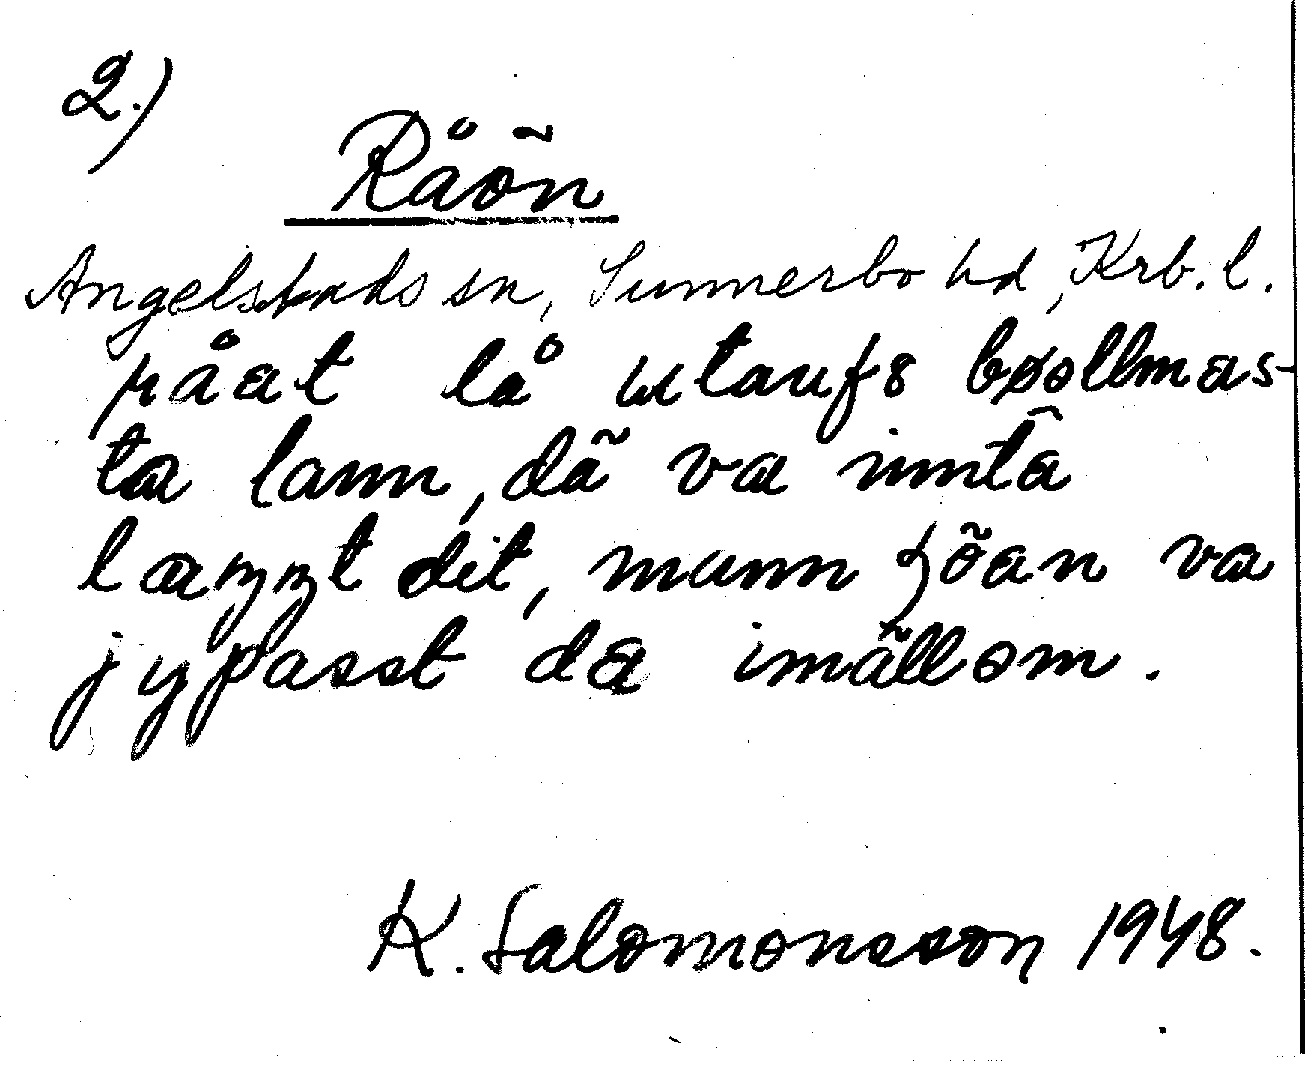 2.)
Råõn
Angelstads sn, Sunnerbo hd, Krb. l.
påat lå utaufs bøllmas-
ta lann, dã va inntâ
laʒʒt dit, munn ʒõan va
jypasst da imãllom.
K. Salomonsson 1948.